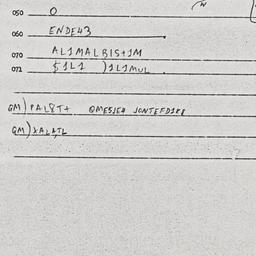 050 O
060 ENDE43
070 AL1MALBIS+1M
071 $1L1 )1L1MUL
GM)PAL8T+ QME5JE4 JONTEFD1K8
GM)XALATL